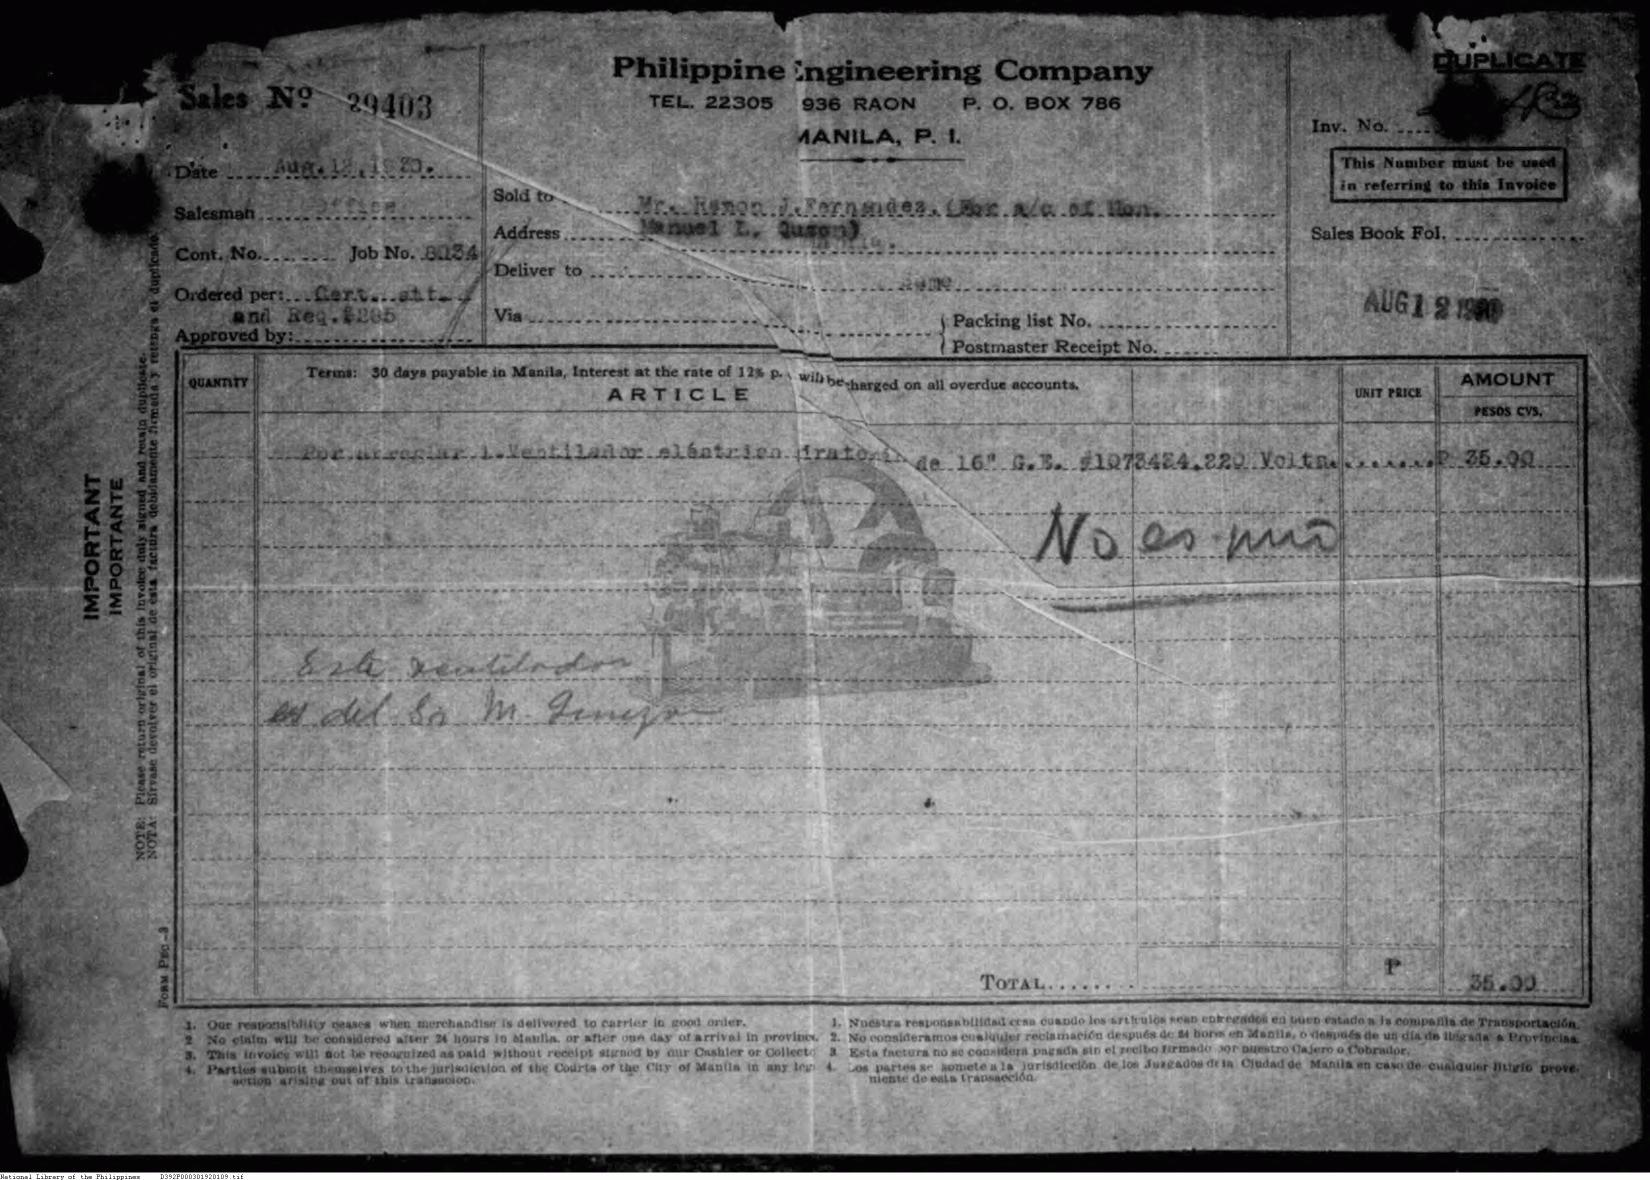 DUPLICATE
Philippine Engineering Company
TEL. 22305 936 RAON P. O. BOX 786
MANILA, P. I.
Sales Nº 29403
Inv. No.
This Number must be used
in referring to this Invoice
Date Aug. 12, 19
Salesman Office
Cont. No. Job No. 8034
Ordered per: Cert. att.
and Req.
Approved by:
Sold to Mr. Ramon J. Fernandez, (For a/c of Hon.
Address Manuel L. Quezon)
Deliver to same
Via
Packing list No.
Postmaster Receipt No.
Sales Book Fol.
AUG 12 19
QUANTITY
Terms: 30 days payable in Manila, Interest at the rate of 12% p. will be charged on all overdue accounts.
ARTICLE
UNIT PRICE
AMOUNT
PESOS CVS.
Por arreglar 1.Ventilador eléctrico de 16" G.E. #1073424.220 Volts. ₱ 35.00
No es mio
Este ventilador
es del Sr M.
TOTAL ₱ 35.00
IMPORTANT
IMPORTANTE
NOTE: Please return original of this invoice duly signed and retain duplicate.
NOTA: Sirvase devolver el original de esta factura debidamente firmada y retenga el duplicado.
FORM PEC-3
1. Our responsibility ceases when merchandise is delivered to carrier in good order.
2 No claim will be considered after 24 hours in Manila, or after one day of arrival in province.
3. This invoice will not be recognized as paid without receipt signed by our Cashier or Collecto
4. Parties submit themselves to the jurisdiction of the Courts of the City of Manila in any leg
action arising out of this transacion.
1. Nuestra responsabilidad cesa cuando los articulos sean entregados en buen estado a la compañia de Transportación.
2. No consideramos cualquier reclamación después de 24 hores en Manila, o después de un dia de llegada a Provincias.
3 Esta factura no se considera pagada sin el recibo firmado por nuestro Cajero o Cobrador.
4. Los partes se somete a la jurisdicción de los Juzgados de la Ciudad de Manila en caso de cualquier litigio prove-
niente de esta transacción.
National Library of the Philippines D392P000301920109.tif